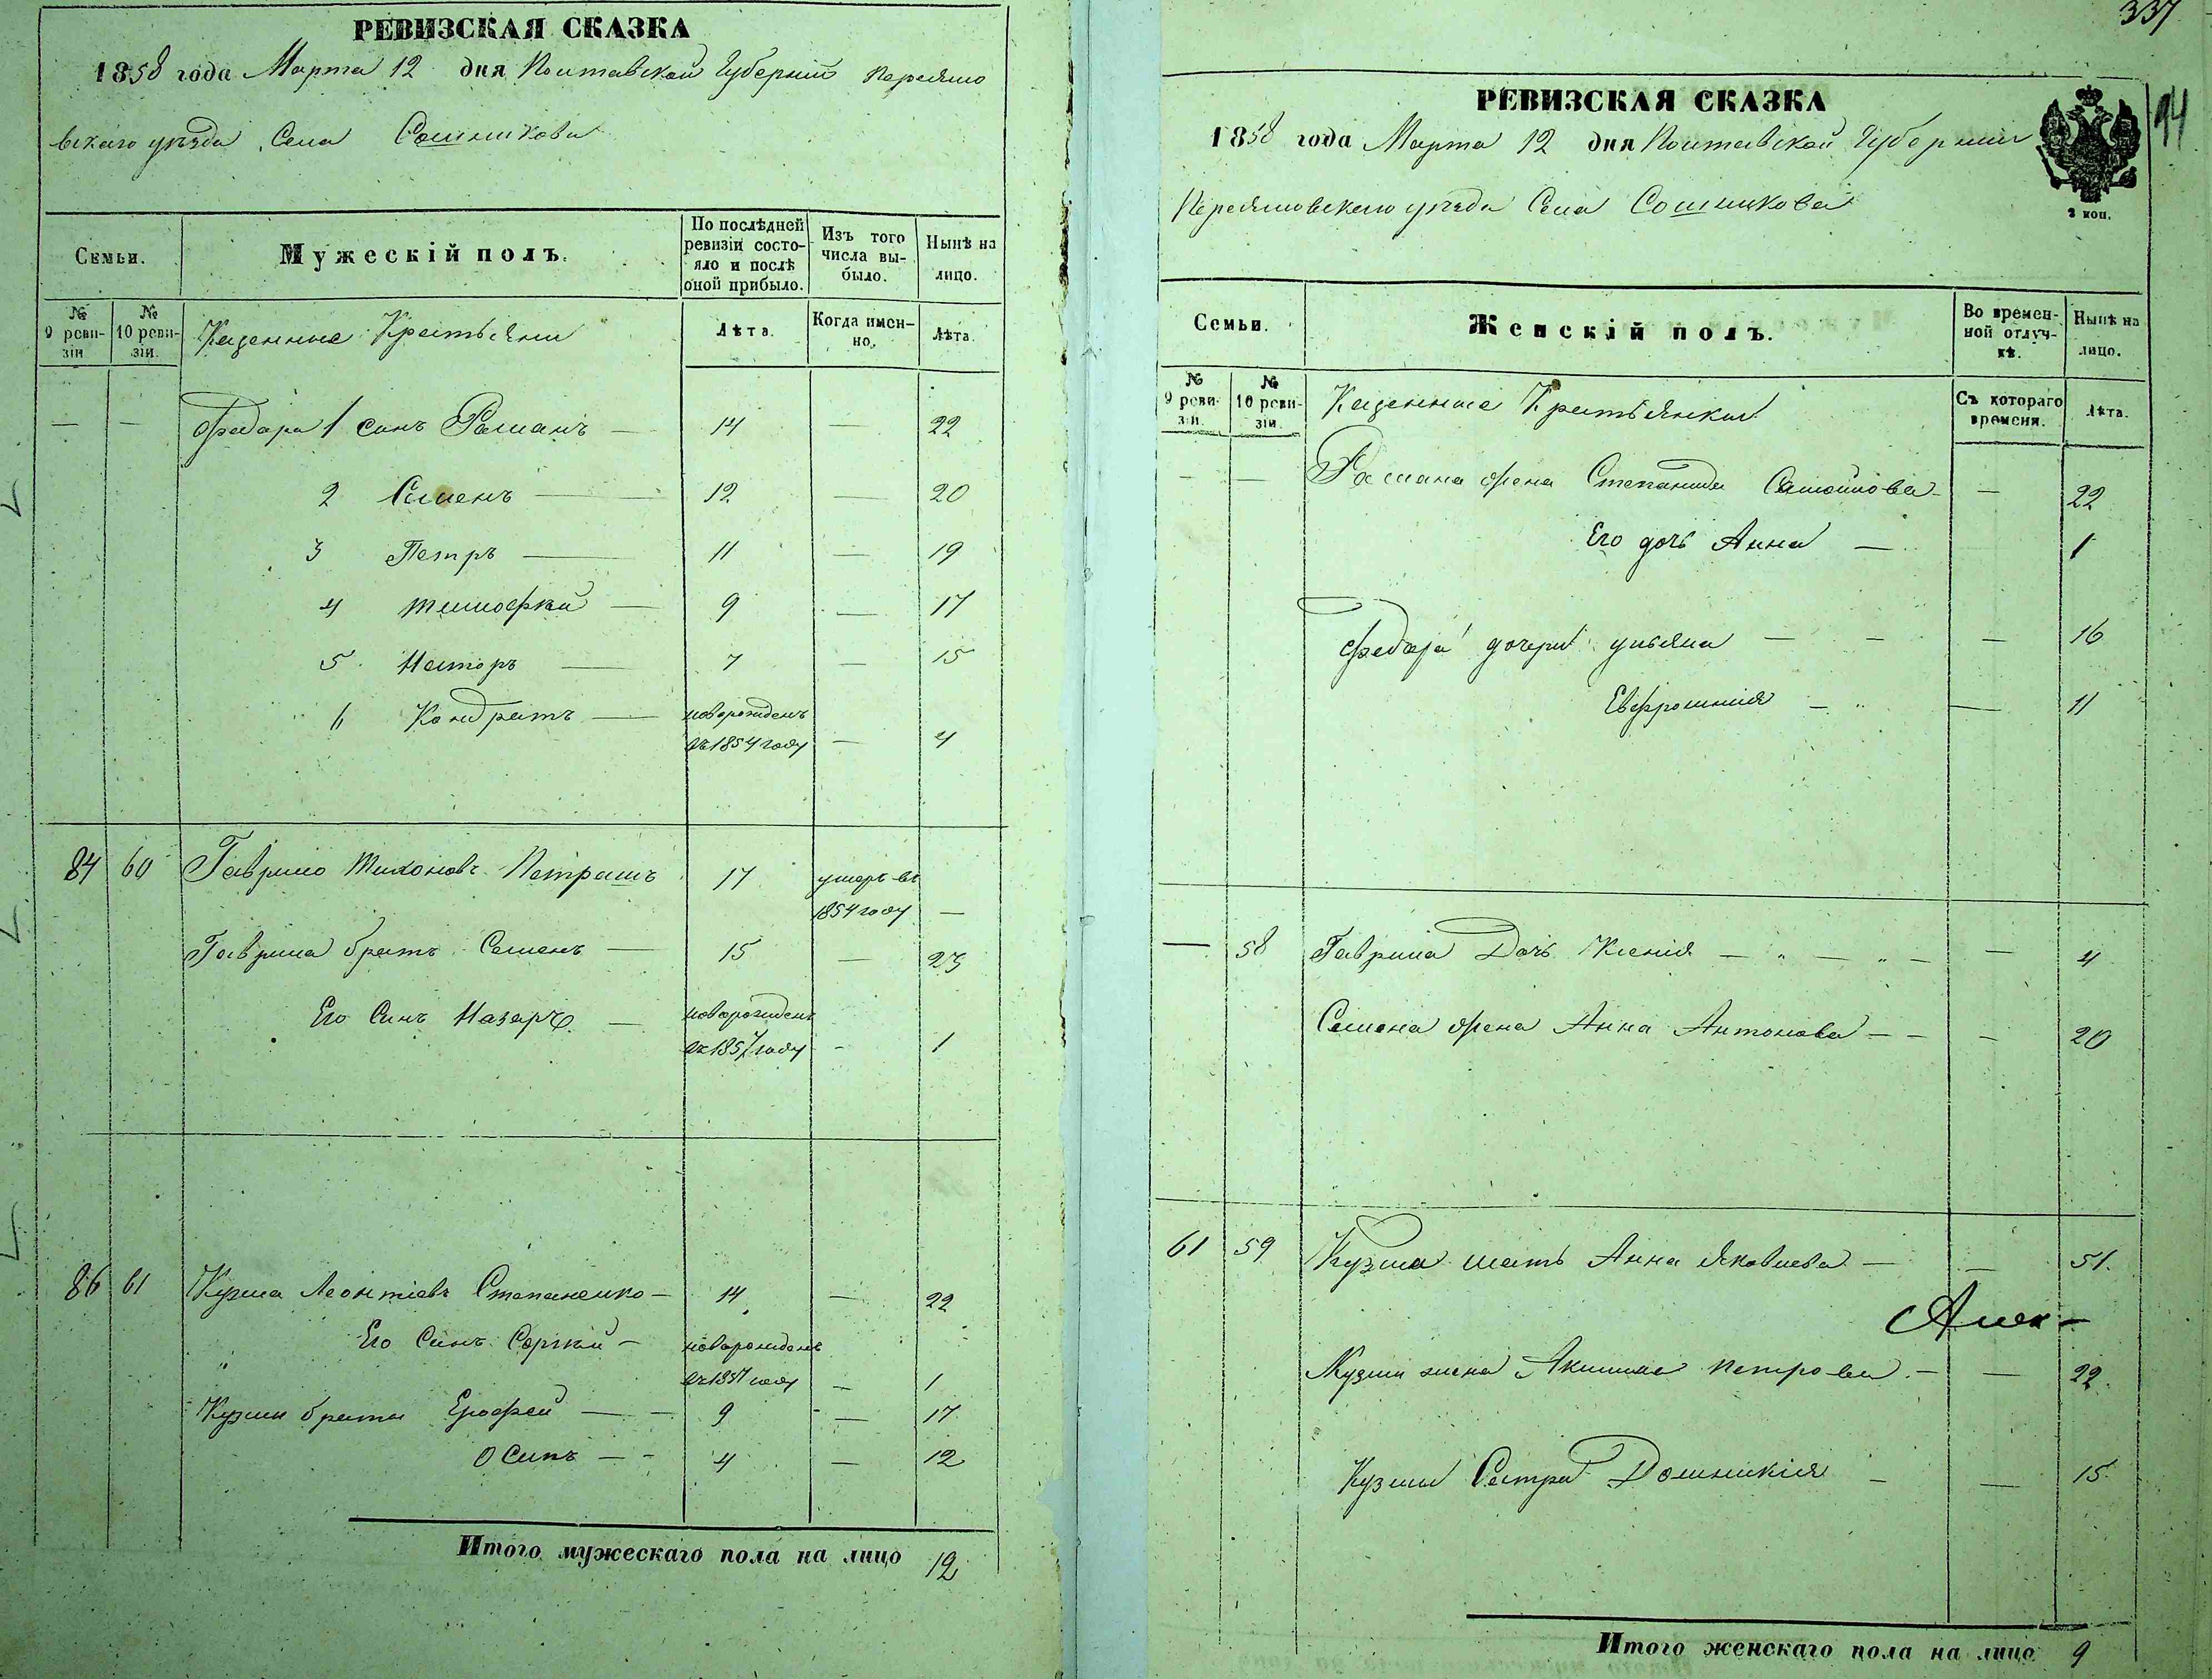 РЕВИЗСКАЯ СКАЗКА
1858 года Марта 12 дня Полтавской Губернии Переясло
вского уезда Села Сошникова
Семьи.
Мужескій полъ.
По послѣдней ревизіи состояло и послѣ оной прибыло.
Изъ того числа выбыло.
Нынѣ на лицо.
№ 9 ревизіи
№ 10 ревизіи.
Казенные Крестьяни
Лѣта.
Когда именно.
Лѣта.
— — Федора 1 синъ Романъ — 14 — 22
2 Семенъ — 12 — 20
3 Петръ — 11 — 19
4 Тимофей — 9 — 17
5 Несторъ — 7 — 15
6 Кондратъ — новорожденъ
въ 1854 году — 4
84 60 Гаврило Тихоновъ Петрашъ 17 умеръ въ
1854 году —
Гаврила братъ Семенъ — 15 — 23
Его Синъ Назаръ — новорожденъ
въ 1857 году - 1
86 61 Кузма Леонтіевъ Степаненко — 14 — 22
Его Синъ Сергѣй — новорожденъ
въ 1857 году — 1
Кузми брати Ерофей — — 9 — 17
Осипъ — - 4 — 12
Итого мужескаго пола на лицо 12
337
94
РЕВИЗСКАЯ СКАЗКА
1858 года Марта 12 дня Полтавской Губернии
Переясловского уезда Села Сошникова
2 коп.
Семьи.
Женскій полъ.
Во временной отлучкѣ.
Нынѣ на лицо.
№ 9 ревизіи.
№ 10 ревизіи.
Казенные Крестьянки
Съ котораго времени.
Лѣта.
— — Романа жена Степанида — 22
Его дочь Анна — 1
Федора дочери Ульяна — - — 16
Евфросинія — — 11
— 58 Гаврила Дочь Ксенія — — — 4
Семена жена Анна Антонова — - - 20
61 59 Кузми мать Анна Яковлева — — 51.
Алек-
Кузми жена Акилина Петрова. — — 22.
Кузми Сестра Домникія — — 15.
Итого женскаго пола на лицо 9